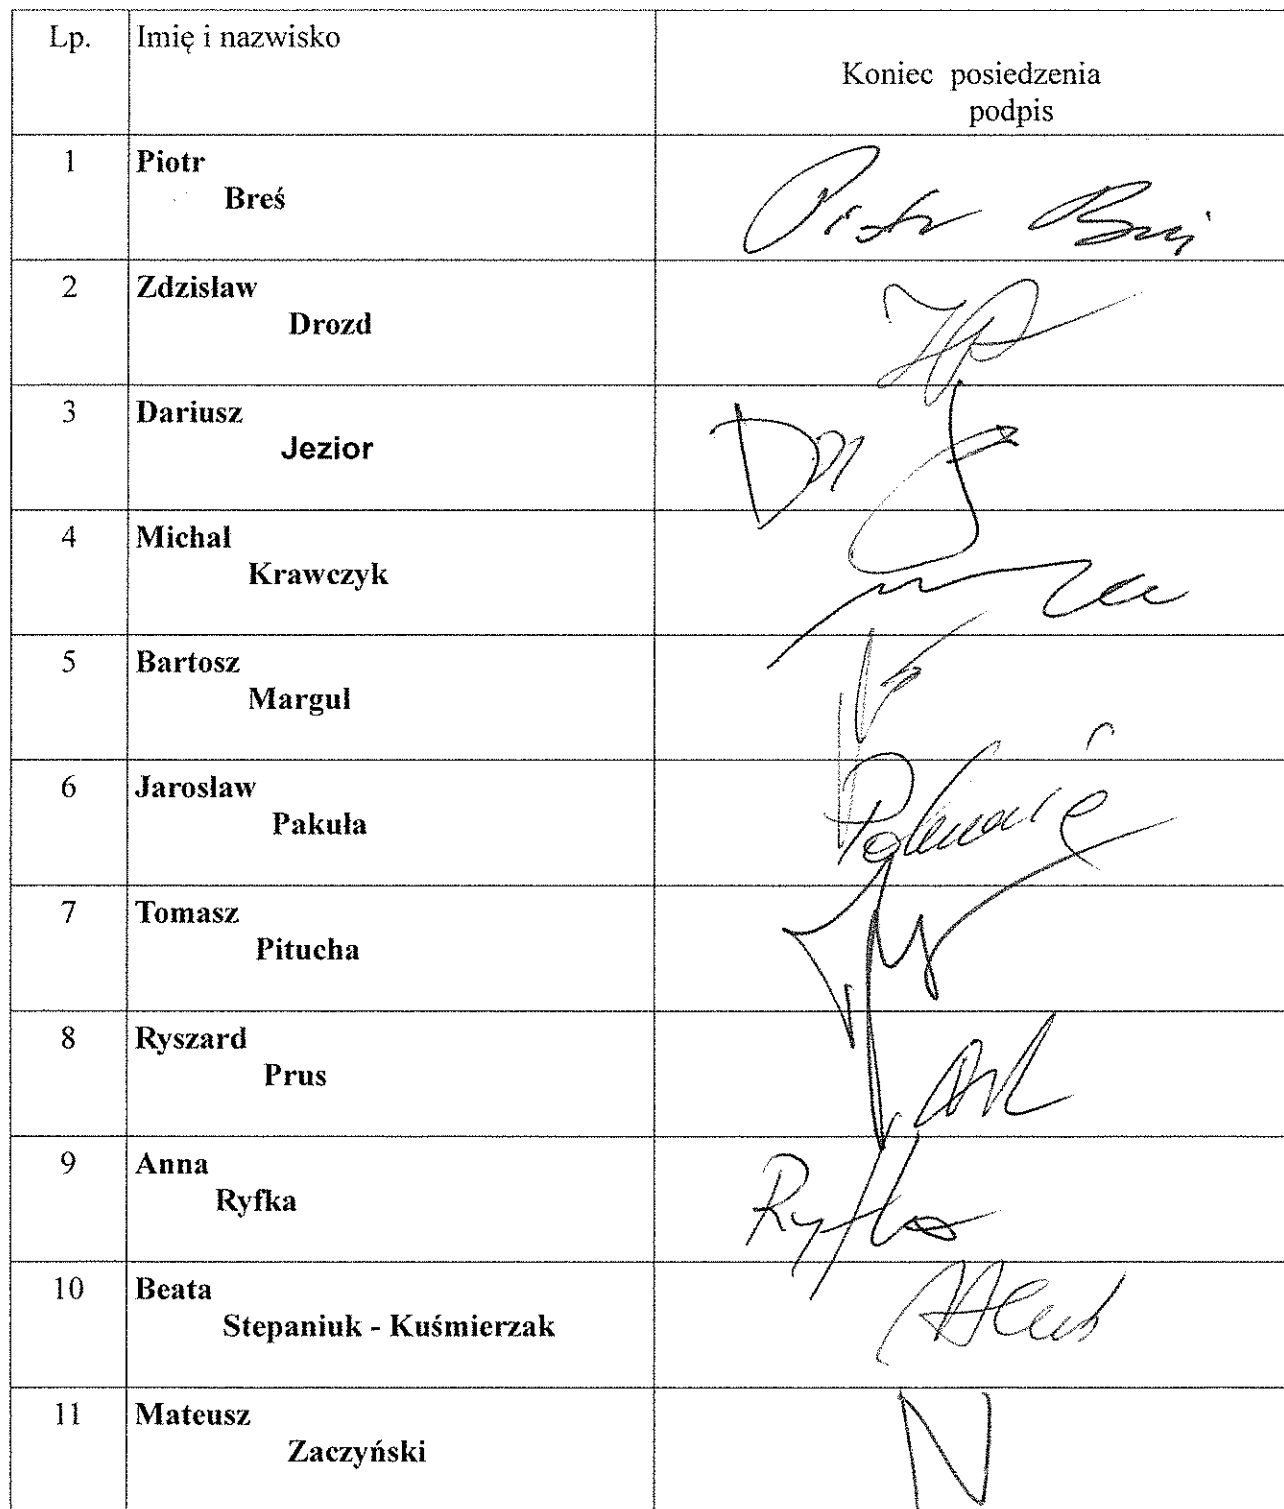 Lp.
Imię i nazwisko
Koniec posiedzenia
podpis
1
Piotr
Breś
Piotr
2
Zdzisław
Drozd
3
Dariusz
Jezior
4
Michał
Krawczyk
5
Bartosz
Margul
6
Jarosław
Pakuła
7
Tomasz
Pitucha
8
Ryszard
Prus
9
Anna
Ryfka
Ryfka
10
Beata
Stepaniuk - Kuśmierzak
11
Mateusz
Zaczyński